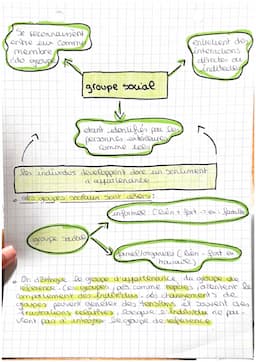 Se reconnaissent
entre eux comme
membre
du groupe
entretient des
interactions
directes ou
indirectes
groupe social
étant identifiés par les
personnes extérieures
comme tels
les individus développent donc un sentiment
d'appartenance
• des groupes sociaux sont divers :
informelle (lien + fort ->
groupe social
(lien - fort et
• On distingue le groupe d'appartenance du groupe de
référence. Ces groupes
comportement des individus. des changements de
groupes peuvent générer des tensions et souvent des
frustrations relatives lorsque l'individu ne par-
vient pas à intégrer le groupe de référence